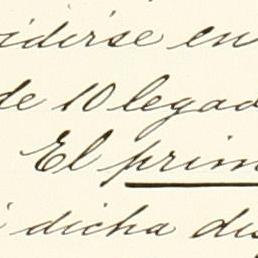 idirse en
de 10 legad
El prim
i dicha dis